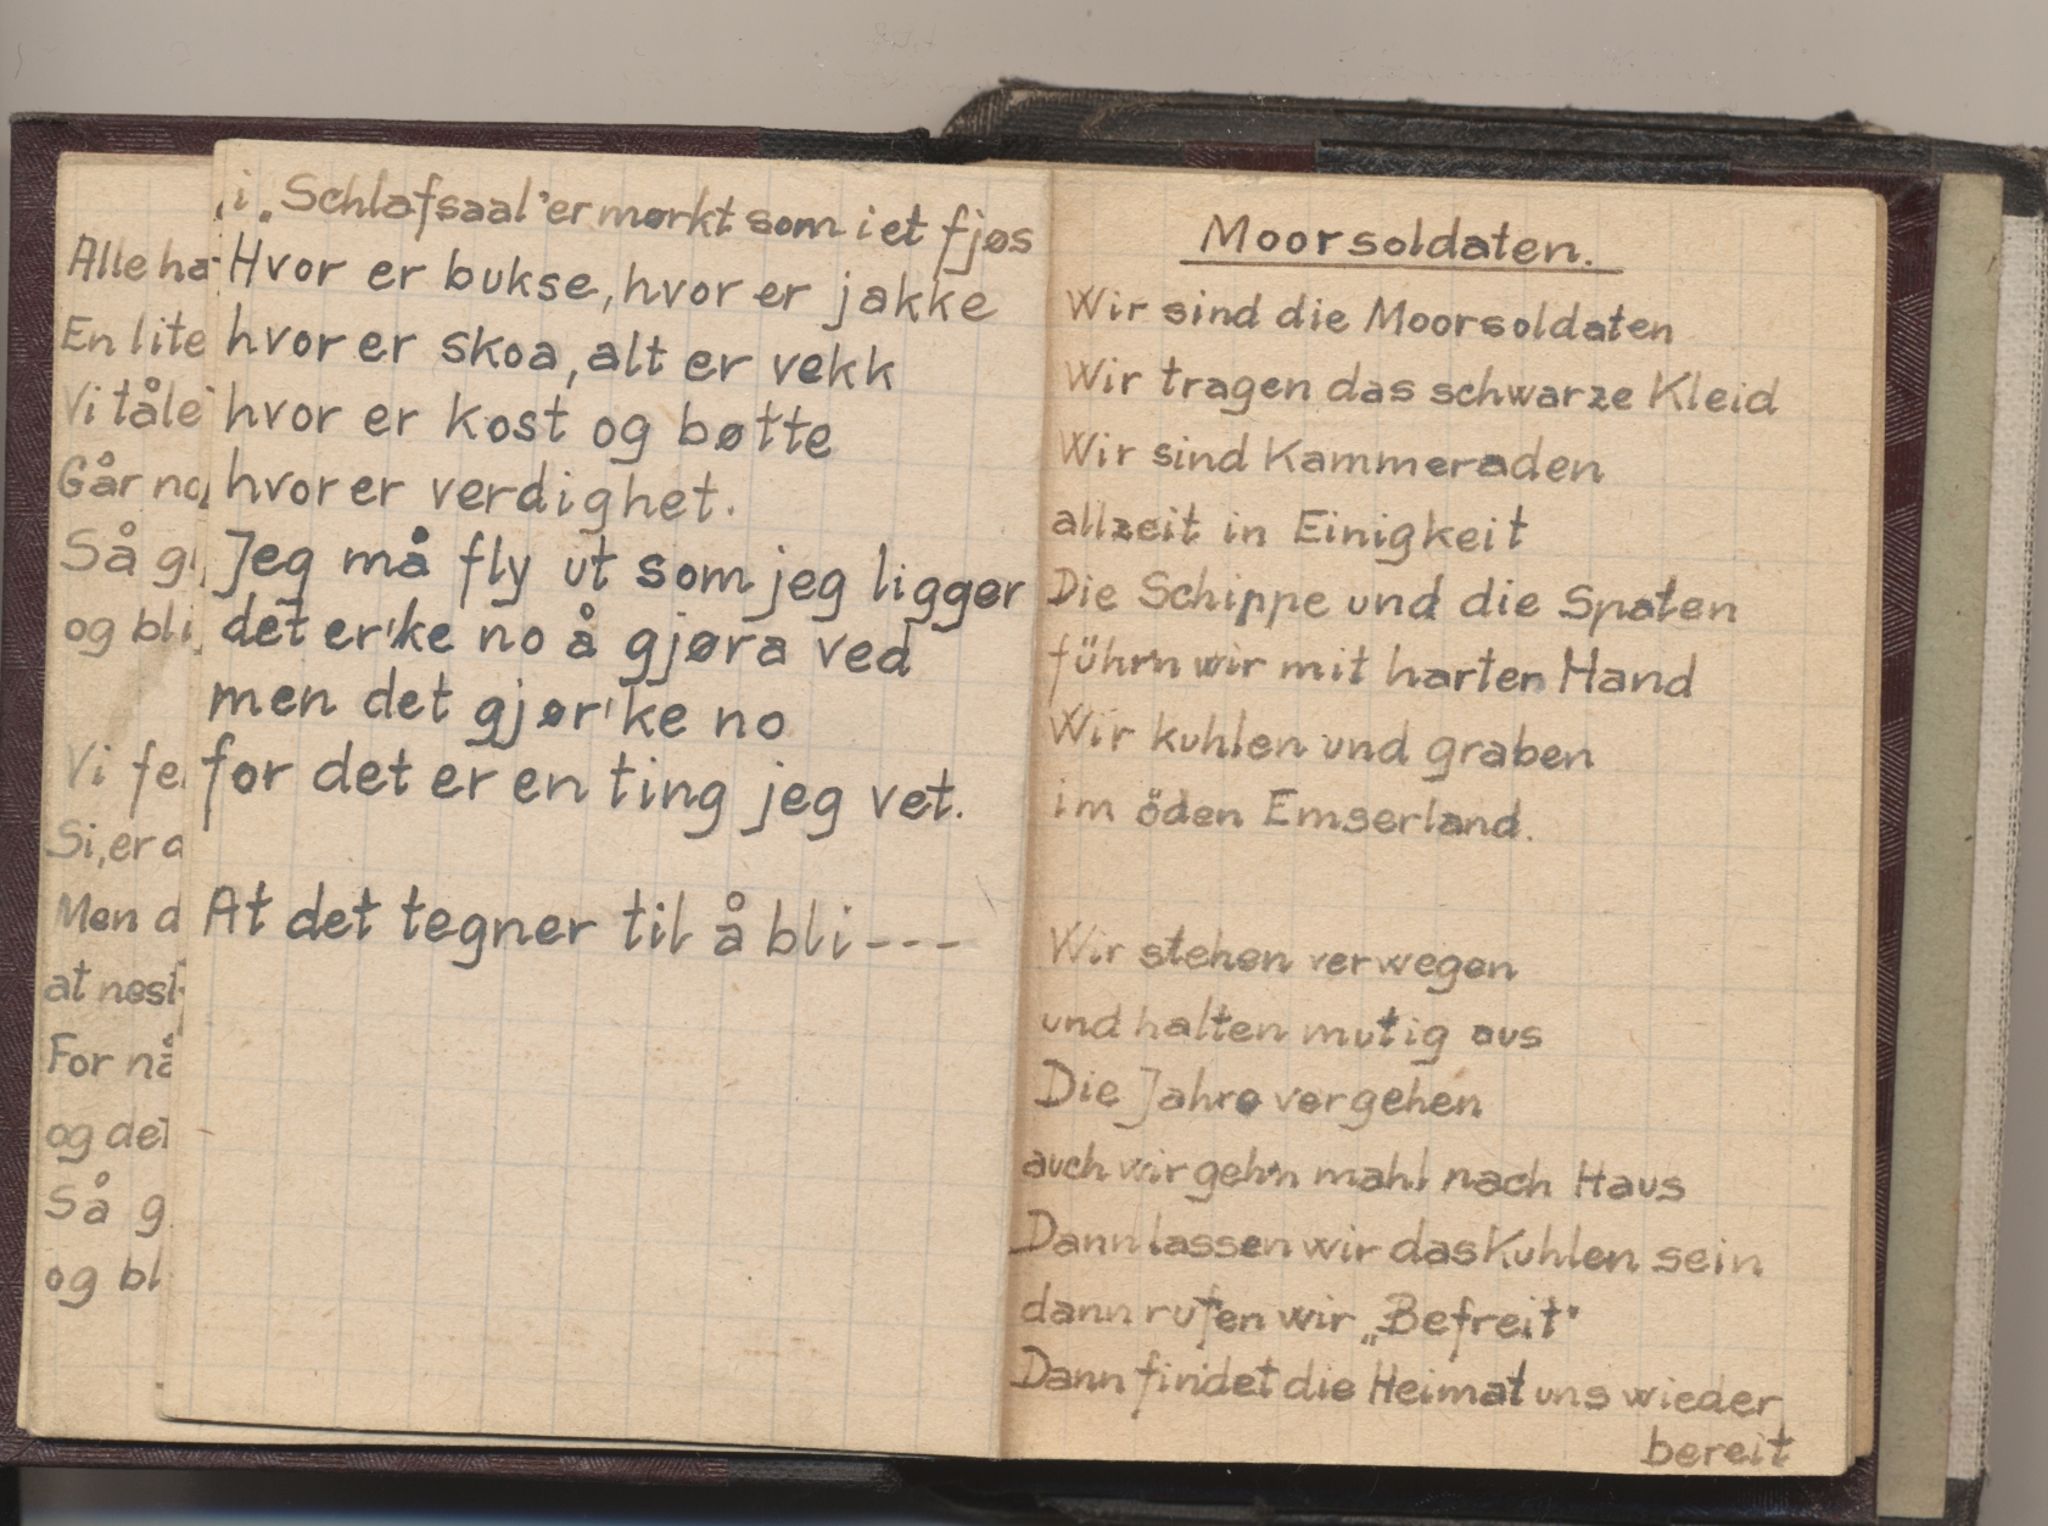 Alle ha
En lite
Vi tåle
Går no
Så g
og bli
Vi fe
Si, er
Men d
at nest
For nå
og det
Så g
og bl
i „Schlafsaal" er mørkt som i et fjøs
Hvor er bukse, hvor er jakke
hvor er skoa, alt er vekk
hvor er kost og bøtte
hvor er verdighet.
Jeg må fly ut som jeg ligger
det er'ke no å gjøra ved
men det gjør'ke no
for det er en ting jeg vet.
At det tegner til å bli ---
Moorsoldaten.
Wir sind die Moorsoldaten
Wir tragen das schwarze Kleid
Wir sind Kammeraden
allzeit in Einigkeit
Die Schippe und die Spaten
führn wir mit harten Hand
Wir kuhlen und graben
im öden Emserland.
Wir stehen verwegen
und halten mutig aus
Die Jahre vergehen
auch wir gehn mahl nach Haus
Dann lassen wir das Kuhlen sein
dann rufen wir „Befreit"
Dann findet die Heimat uns wieder
bereit